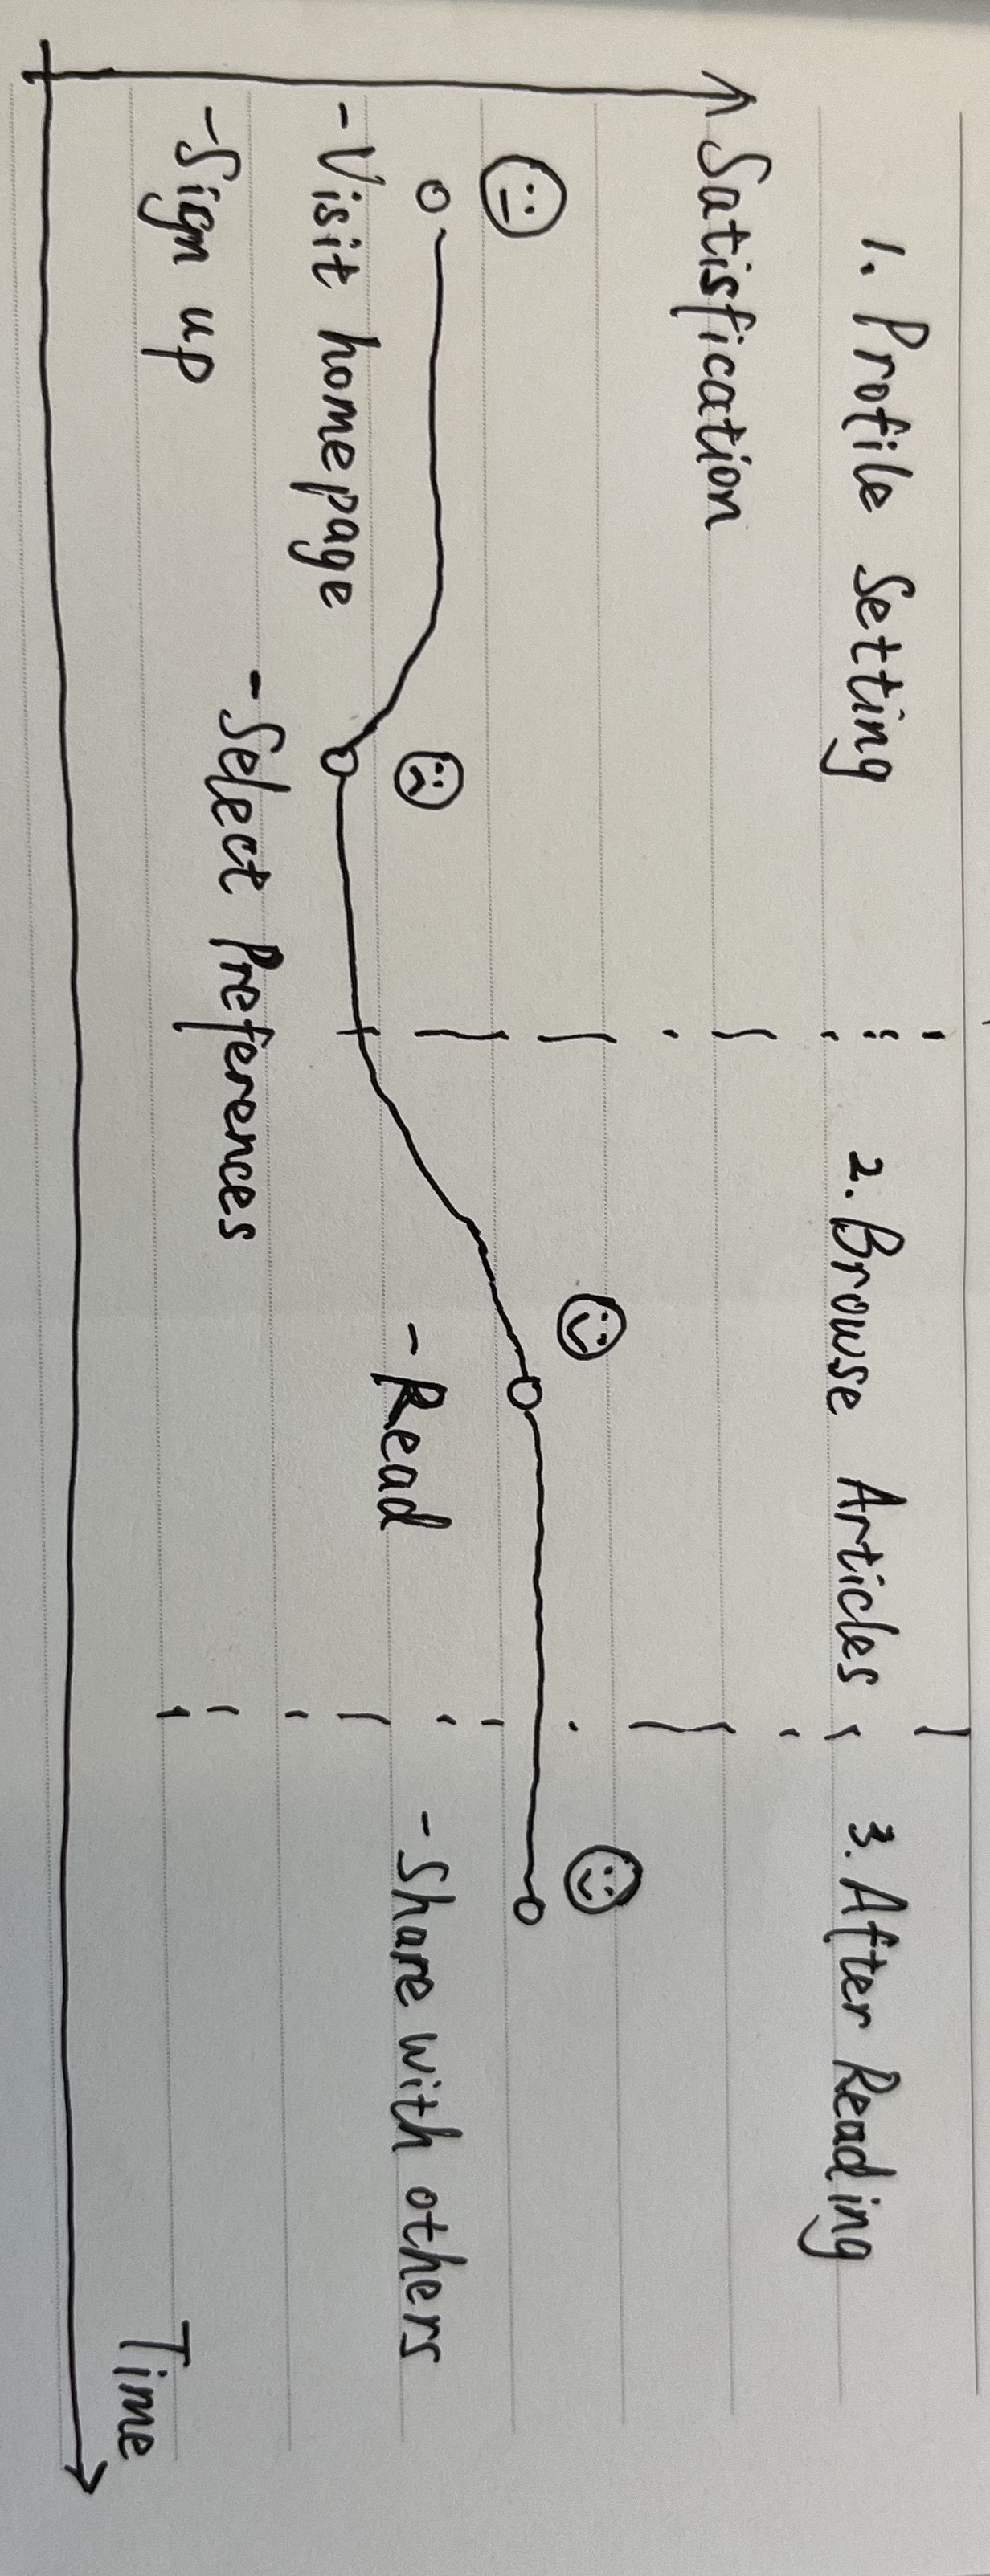 1. Profile Setting
2. Browse Articles
3. After Reading
Satisfication
- Visit homepage
- Sign up
- Select Preferences
- Read
- Share with others
Time